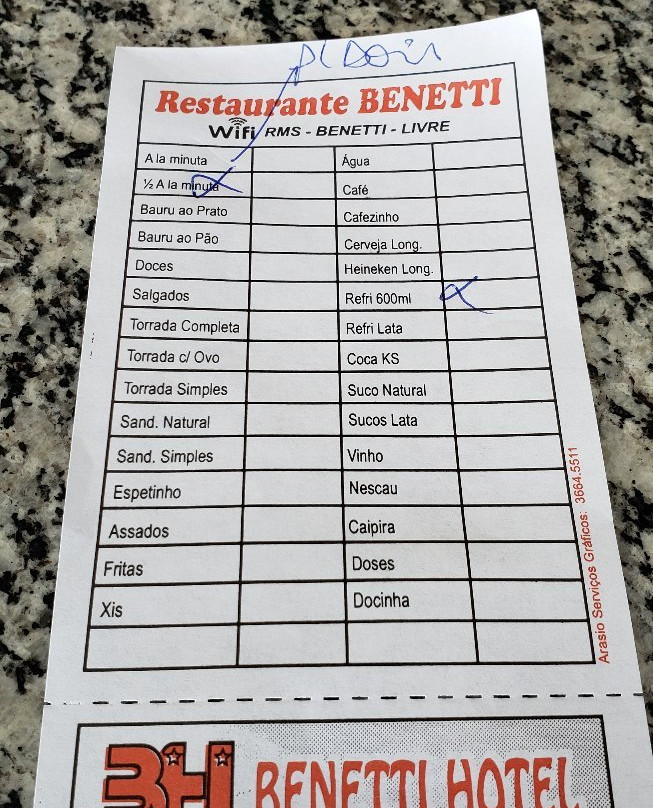 P/ DOIS
Restaurante BENETTI
Wifi RMS - BENETTI - LIVRE
A la minuta Água
½ A la minuta Café
Bauru ao Prato Cafezinho
Bauru ao Pão Cerveja Long.
Doces Heineken Long.
Salgados Refri 600ml
Torrada Completa Refri Lata
Torrada c/ Ovo Coca KS
Torrada Simples Suco Natural
Sand. Natural Sucos Lata
Sand. Simples Vinho
Espetinho Nescau
Assados Caipira
Fritas Doses
Xis Docinha
Arasio Serviços Gráficos: 3664.5511
BH BENETTI HOTEL